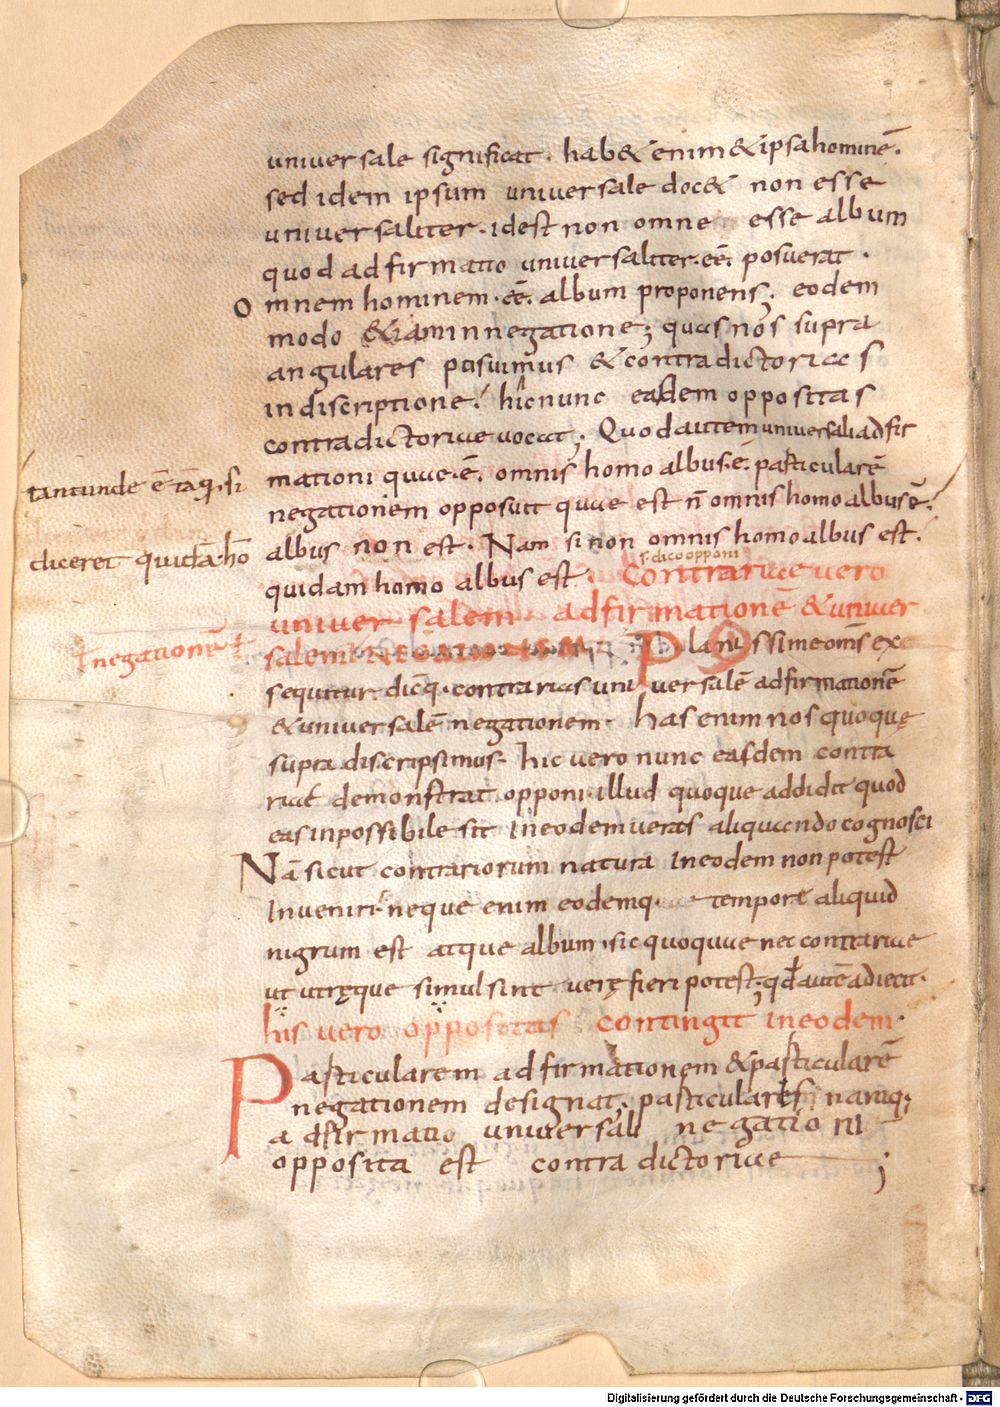 universale significat. hab& enim & ipsa hominē.
sed idem ipsum universale doc& non esse
universaliter. idest non omne esse album
quod adfirmatio universaliter. eē. posuerat.
omnem hominem. eē. album proponens; eodem
modo &iam in negatione; quas nos supra
angulares posuimus & contradictorias
in discriptione. hic nunc easdem oppositas
contradictoriae vocat; Quod autem universali adfir
mationi quae. ē. omnis homo albus. ē. particularē
tantunde ē tāq, si
negationem opposuit quae est n̄ omnis homo albus ē.
diceret quidā hō
albus non est. Nam si non omnis homo albus est.
s. dico opponi
quidam homo albus est. Contrariae vero
universalem adfirmationē & univer
negationē
salem Planissime om̄s ex
sequitur. dicq. contrarias universalē adfirmationē
& universalē negationem. has enim nos quoquę
supra discripsimus. hic vero nunc easdem contra
riae demonstrat opponi. illud quoque addidit quod
eas inpossibile sit in eodem veras aliquando cognosci
Nā sicut contrariorum natura in eodem non potest
Inveniri. neque enim eodemq. tempore aliquid
nigrum est atque album. sic quoquae nec contrariae
ut utręque simul sint verę fieri potest; qđ autē adiecit.
his vero oppositas contingit in eodem.
Particularem adfirmationem & particularē
negationem designat. particularis namq;
adfirmatio universali negationi
opposita est contradictoriae ;
Digitalisierung gefördert durch die Deutsche Forschungsgemeinschaft - DFG